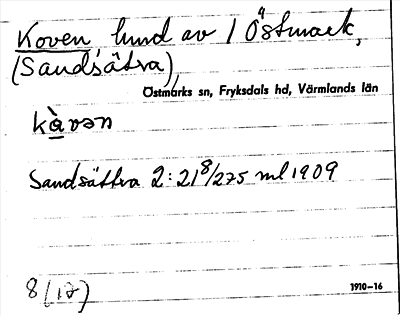 Koven, hund av 1 Östmark,
(Sandsätra)
Östmarks sn, Fryksdals hd, Värmlands län
kàvən
Sandsättra 2:21 8/275 ml 1909
8(17)
1910-16